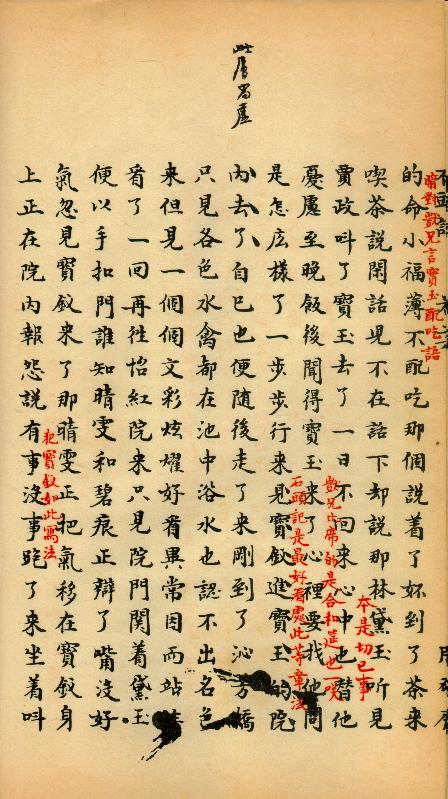 暗對獃兄言寶玉配吃語
的命小福薄不配吃那個說着到了茶来
喫茶說閑話児不在話下却說那林黛玉听見
本是切己事
賈政呌了寶玉去了一日不回来心中也替他
獃兄此席的是合和筵也一嘆
憂慮至晚飯後聞得寶玉来了心裡要找他問
石頭記是最好看處此等章法
是怎庅樣了一步步行来見寶釵進寶玉的院
內去了自已也便隨後走了来剛到了沁芳橋
只見各色水禽都在池中浴水也認不出名色
来但見一個個文彩炫耀好看異常因而站住
看了一回再往怡紅院来只見院門関着黛玉
便以手扣門誰知晴雯和碧痕正辯了嘴沒好
氣忽見寶釵来了那晴雯正把氣移在寶釵身
犯寶釵如此寫法
上正在院內報怨說有事沒事跑了来坐着呌